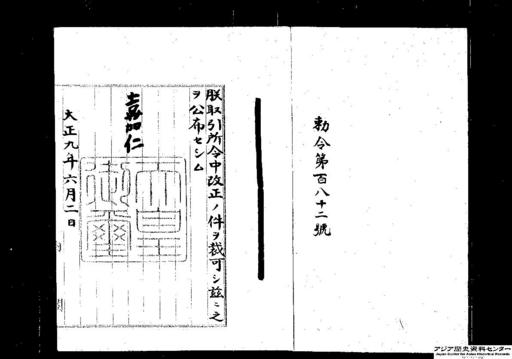 勅令第百八十二號
朕取引所令中改正ノ件ヲ裁可シ茲ニ之
ヲ公布セシム
嘉仁
天皇
御璽
大正九年六月二日
アジア歴史資料センター
Japan Center for Asian Historical Records